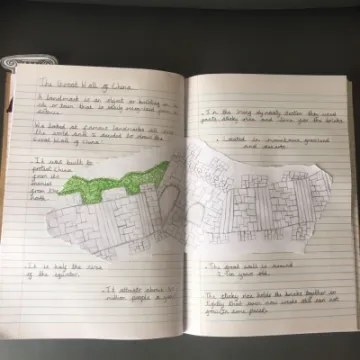 The Great Wall of China
A landmark is an object or building in a
city or town that is easily seen and from a
distance.
We looked at famous landmarks all over
the world and I decided to draw the
Great Wall of China.
. It was built to
protect China
from the
from the
North.
. It is half the size
of the equator.
. It attracts about
million people a year
. In the Ming dynasty durtion they used
paste sticky rice and lime for the bricks
. Located in mountains grassland
and deserts.
. The great wall is around
years old.
. The sticky rice holds the bricks together so
tightly that even now weeds still can not
grow in some places.